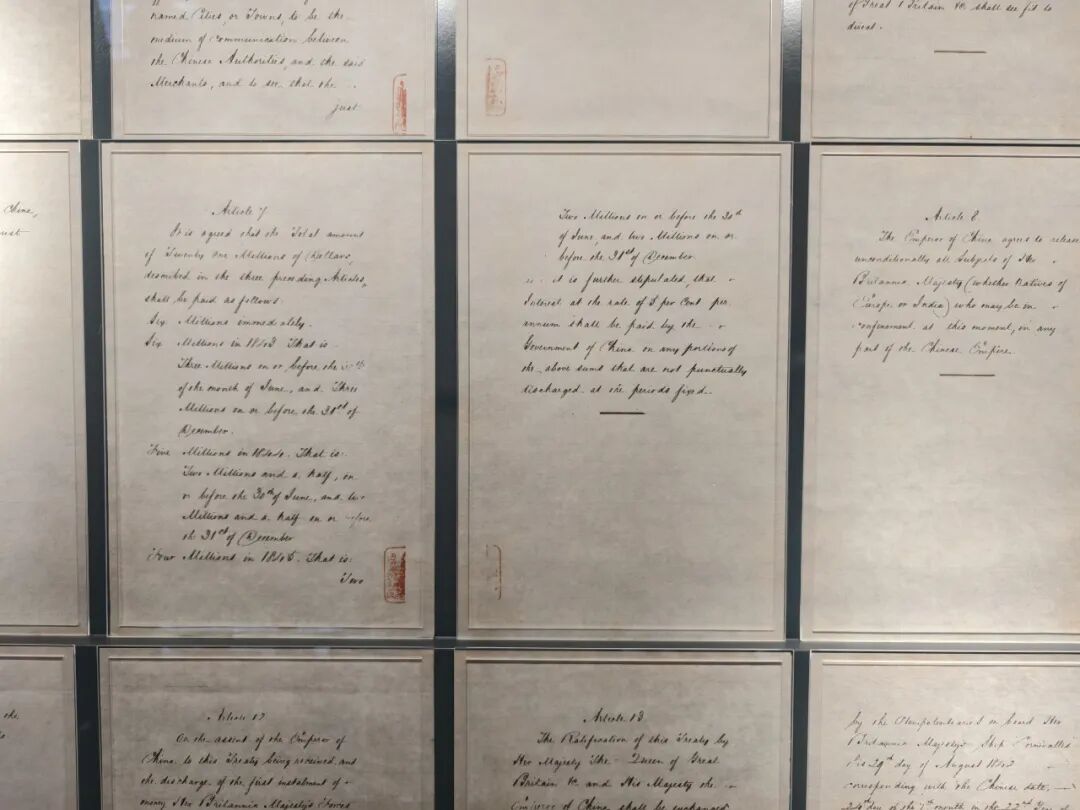 named Cities, or Towns, to be the
medium of Communication between
the Chinese Authorities, and the said
Merchants, and to see that the
just
of Great Britain &c shall see fit to
direct.
China,
Article 7
It is agreed that the Total amount
of Twenty One Millions of Dollars,
described in the three preceding Articles,
shall be paid as follows.
Six Millions immediately.
Six Millions in 1843. That is
Three Millions on or before the 30th
of the month of June, and Three
Millions on or before the 31st of
December.
Five Millions in 1844. That is:
Two Millions and a half, on
or before the 30th of June, and two
Millions and a half on or before
the 31st of December
Four Millions in 1845. That is:
Two
Two Millions on or before the 30th
of June, and two Millions on or
before the 31st of December
it is further stipulated that
Interest at the rate of 5 per Cent per
annum shall be paid by the
Government of China on any portions of
the above sums that are not punctually
discharged at the periods fixed.
Article 8
The Emperor of China agrees to release
unconditionally all Subjects of Her
Britannic Majesty (whether Natives of
Europe or India) who may be in
confinement at this moment, in any
part of the Chinese Empire.
the
Article 12
On the assent of the Emperor of
China to this Treaty being received and
the discharge of the first instalment of
money Her Britannic Majesty's Forces
Article 13
The Ratification of this Treaty by
Her Majesty The Queen of Great
Britain &c and His Majesty the
Emperor of China shall be exchanged
by the Plenipotentiaries on board Her
Britannic Majesty's Ship Cornwallis
this 29th day of August 1842
corresponding with the Chinese date,
24th day of the 7th month in the 22nd Year